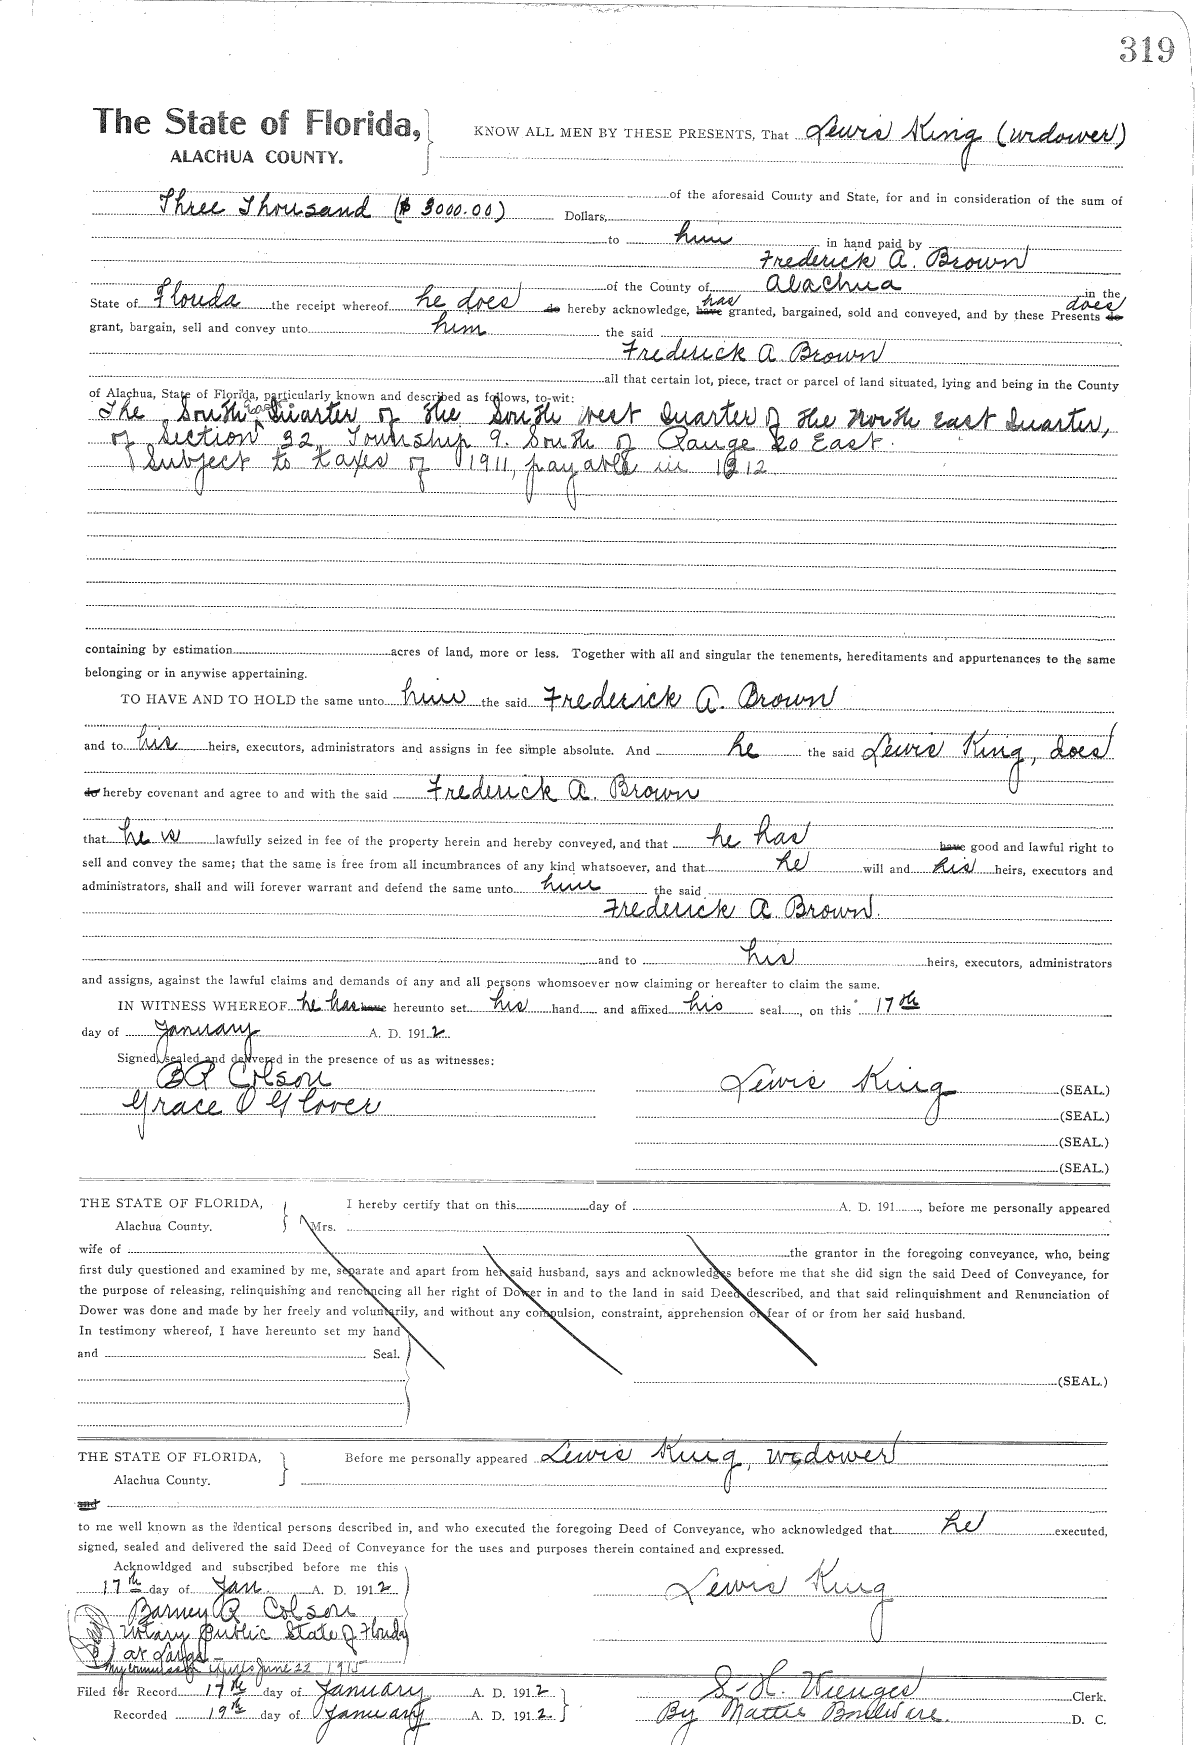 319
The State of Florida,
ALACHUA COUNTY.
KNOW ALL MEN BY THESE PRESENTS, That Lewis King (widower)
of the aforesaid County and State, for and in consideration of the sum of
Three Thousand ($3000.00) Dollars,
to him in hand paid by
Frederick A. Brown
of the County of Alachua in the
State of Florida the receipt whereof he does do hereby acknowledge, has have granted, bargained, sold and conveyed, and by these Presents does do
grant, bargain, sell and convey unto him the said
Frederick A Brown
all that certain lot, piece, tract or parcel of land situated, lying and being in the County
of Alachua, State of Florida, particularly known and described as follows, to-wit:
The South East Quarter of the South west Quarter of the North East Quarter,
of Section 32, Township 9. South of Range 20 East.
Subject to taxes of 1911, payable in 1912
containing by estimation acres of land, more or less. Together with all and singular the tenements, hereditaments and appurtenances to the same
belonging or in anywise appertaining.
TO HAVE AND TO HOLD the same unto him the said Frederick A. Brown
and to his heirs, executors, administrators and assigns in fee simple absolute. And he the said Lewis King, does
do hereby covenant and agree to and with the said Frederick A. Brown
that he is lawfully seized in fee of the property herein and hereby conveyed, and that he has have good and lawful right to
sell and convey the same; that the same is free from all incumbrances of any kind whatsoever, and that he will and his heirs, executors and
administrators, shall and will forever warrant and defend the same unto him the said
Frederick A Brown.
and to his heirs, executors, administrators
and assigns, against the lawful claims and demands of any and all persons whomsoever now claiming or hereafter to claim the same.
IN WITNESS WHEREOF he has have hereunto set his hand and affixed his seal, on this 17th
day of January A. D. 1912.
Signed, sealed and delivered in the presence of us as witnesses:
BR Colson
Lewis King (SEAL.)
Grace O Glover
(SEAL.)
(SEAL.)
(SEAL.)
THE STATE OF FLORIDA,
Alachua County.
I hereby certify that on this day of A. D. 191 , before me personally appeared
Mrs.
wife of the grantor in the foregoing conveyance, who, being
first duly questioned and examined by me, separate and apart from her said husband, says and acknowledges before me that she did sign the said Deed of Conveyance, for
the purpose of releasing, relinquishing and renouncing all her right of Dower in and to the land in said Deed described, and that said relinquishment and Renunciation of
Dower was done and made by her freely and voluntarily, and without any compulsion, constraint, apprehension or fear of or from her said husband.
In testimony whereof, I have hereunto set my hand
and Seal.
(SEAL.)
THE STATE OF FLORIDA,
Alachua County.
Before me personally appeared Lewis King, widower
and
to me well known as the identical persons described in, and who executed the foregoing Deed of Conveyance, who acknowledged that he executed,
signed, sealed and delivered the said Deed of Conveyance for the uses and purposes therein contained and expressed.
Acknowldged and subscribed before me this
17th day of Jan. A. D. 1912
Lewis King
Barney R Colson
Notary Public State of Florida
at Large
My commission expires June 22 1915
Filed for Record 17th day of January A. D. 1912
Recorded 19th day of January A. D. 1912.
S. H. Wienges Clerk.
By Mattie D. C.